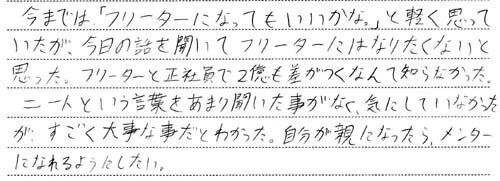 今までは、「フリーターになってもいいかな。」と軽く思って
いたが、今日の話を聞いてフリーターにはなりたくないと
思った。フリーターと正社員で2億も差がつくなんて知らなかった。
ニートという言葉をあまり聞いた事がなく、気にしていなかった
が、すごく大事な事だとわかった。自分が親になったら、メンター
になれるようにしたい。